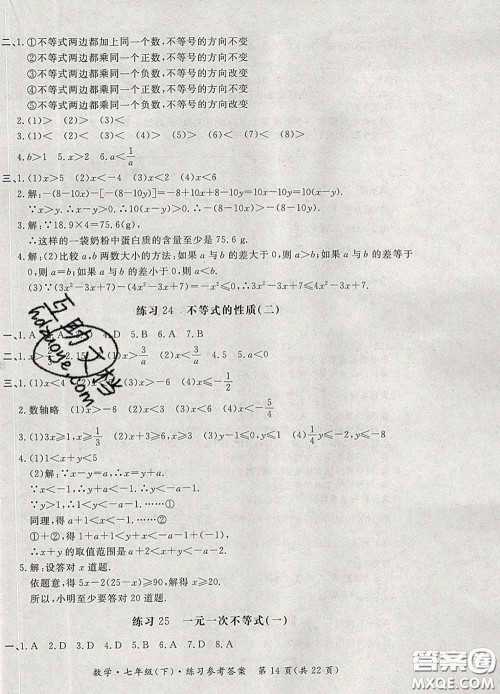 二、1. ①不等式两边都加上同一个数，不等号的方向不变
②不等式两边都乘同一个正数，不等号的方向不变
③不等式两边都乘同一个负数，不等号的方向改变
④不等式两边都乘同一个正数，不等号的方向不变
⑤不等式两边都乘同一个负数，不等号的方向改变
2. (1)> (2)> (3)<
3. (1)> (2)> (3)< (4)> (5)> (6)<
4. b>1 5. x>2 6. a<1/a
三、1. (1)x>5 (2)x>-1 (3)x<4 (4)x<6
2. 解：-(8-10x)-[-(8-10y)]=-8+10x+8-10y=10(x-y).
∵x>y，∴x-y>0，∴10(x-y)>0，∴-(8-10x)>-(8-10y).
3. 解：∵18.9×4=75.6(g)，
∴这样的一袋奶粉中蛋白质的含量至少是75.6 g.
4. 解：(2)比较a，b两数大小的方法：如果a与b的差大于0，则a>b；如果a与b的差等于
0，则a=b；如果a与b的差小于0，则a<b.
(3)∵(3x²-3x+7)-(4x²-3x+7)=-x²≤0，∴3x²-3x+7≤4x²-3x+7.
练习24 不等式的性质(二)
一、1. A 2. A 3. D 4. D 5. B 6. A 7. D
二、1. x> 2. 15 (1)x>3/a (2)x<3/a
三、1. (1)x<4 (2)x<5 (3)x<6 (4)x≤-1/2
2. 数轴略 (1)x>-6 (2)x>-4 (3)x<-6
3. (1)3x≥1，x≥1/3 (2)x+3≥6，x≥3 (3)y-1≤0，y≤1 (4)1/4y≤-1/2，y≤-2
4. (1)1<x+y<5
(2)解：∵x-y=a，∴x=y+a.
∵x<-1，∴y+a<-1，∴y<-a-1.
∵y>1，∴1<y<-a-1. ……①
同理，得a+1<x<-1. ……②
由①+②，得1+a+1<x+y<-a-1+(-1)，
∴x+y的取值范围是a+2<x+y<-a-2.
5. 解：设答对x道题.
依题意，得5x-2(25-x)≥90. 解得x≥20.
所以，小明至少要答对20道题.
练习25 一元一次不等式(一)
一、1. A 2. D 3. D 4. D 5. B 6. D 7. D 8. A
数学·七年级(下)·练习参考答案 第14页(共22页)
互助文档
hdzuoye.com